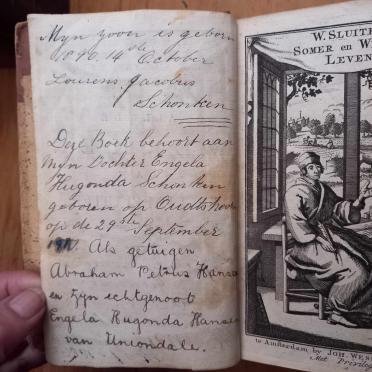 Myn zoon is geboren
1890. 14ste October
Lourens Jacobus
Schonken
Deze Boek behoort aan
Myn Dochter Engela
Hugonda Schonken
geboren op Oudtshoorn
op de 29ste September
Als getuigen
Abraham Petrus
en zyn echtgenoot
Engela Hugonda
van Uniondale.
W. SLUITE
SOMER en W
LEVEN
te Amsterdam by JOH. WES
Met Privileg